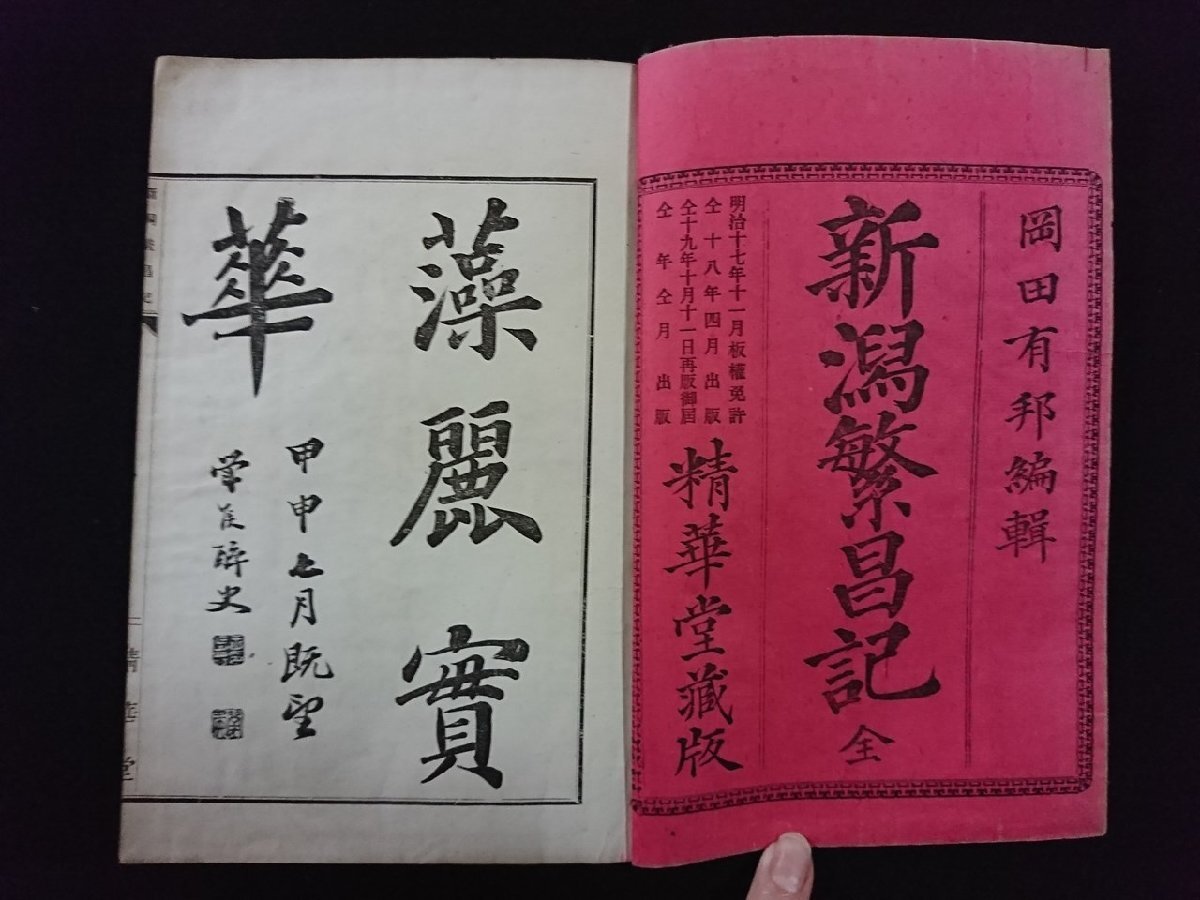 岡田有邦編輯
新潟繁昌記 全
明治十七年十一月板權免許
仝十八年四月出版
仝十九年十月十一日再版御届
仝年仝月出版
精華堂藏版
藻麗實
華
甲申七月既望
醉史